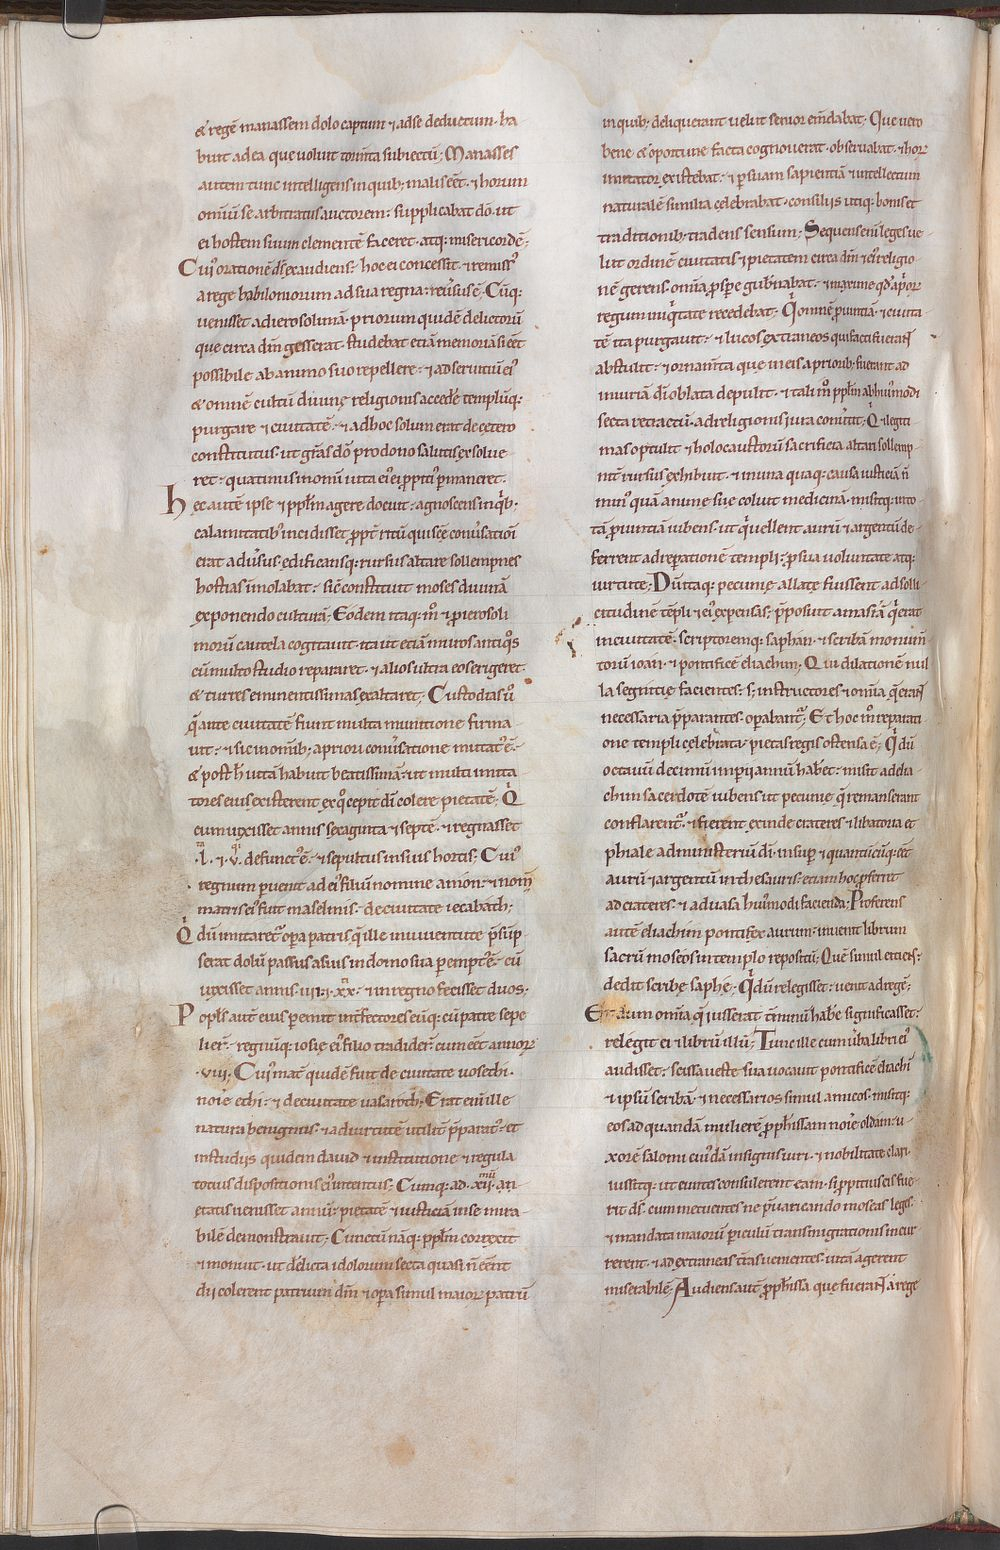 & regẽ manassem dolo captum & adse deductum· ha
buit adea que voluit tormta subiectũ; Manasses
autem tunc intelligens inquib; malis eẽt· ⁊ horum
omniũ se arbitratus auctorem· supplicabat dõ· ut
ei hostem suum clementẽ faceret· atq; misericordẽ;
Cui' orationẽ dš exaudiens· hoc ei concessit· ⁊ remiss'
arege babiloniorum ad sua regna· reũsus ẽ· Cũq;
venisset adierosolimã· priorum quidẽ delictorũ
que circa dm̃ gesserat· studebat etiã memoriã si eẽt
possibile ab animo suo repellere· ⁊ ad seruitiũ ei'
& omnẽ cultũ diuinę religionis accedẽ· templũq;
purgare ⁊ ciuitatẽ· ⁊ adhoc solum erat decętero
constitutus· ut grãs dõ pro dono salutis exsolue
ret· quatinus inomĩ uita ei' ei ppiti' pmaneret·
hec autẽ ipse ⁊ pplm̃ agere docuit· agnoscens inqͥb·
calamitatib' incidisset ppt̃ ritũ quis ęe conũsatiõi
erat adũsus· ędificansq; rursus altare sollempnes
hostias ĩmolabat· sic̃ constituit moses diuinã
exponendo culturã; Eodem itaq; mͦ ⁊ p ierosoli
morũ cautela cogitauit· ita ut etiã muros antiqͦs
cũ multo studio repararet· ⁊ alios ultra eos erigeret·
& turres eminentissimas exaltaret; Custodias ũ
q̃ ante ciuitatẽ fiunt multa munitione firma
uit· ⁊ sic inomĩb; apriori conũsatione mutat' ẽ·
& posth̃ uitã habuit beatissimã· ut multi imita
tores eius existerent ex qͦ cepit dm̃ colere pietatẽ; Q̃
cum uixisset annis sexaginta ⁊ septẽ· ⁊ regnasset
·l· ⁊ ·v· defunct' ẽ· ⁊ sepultus in suis hortis; Cui'
regnum puenit ad ei' filiũ nomine amon· ⁊ nom̃
matris ei' fuit maselmis· deciuitate iecabath;
Q̃ dũ imitaret̃ opa patris q̃ ille iniuuentute p̃sũp
serat dolũ passus asuis indomo sua perempt' ẽ· cũ
uixisset annis ·iiii· ⁊ ·xx· ⁊ inregno fecisset duos;
Popls̃ autẽ eius pemit int̃fectores eũq; cũ patre sepe
lier̃· regnũq; iosię ei' filio tradider̃ cum eẽt annorꝝ
·viii; Cui' mat̃ quidẽ fuit de ciuitate vosechi·
noie echi· ⁊ deciuitate vasaroth; Erat enĩ ille
natura benignus· ⁊ aduirtutẽ utilit̃ p̃parat'· et
instudiis quidem dauid ⁊ institutione ⁊ regula
totius dispositionis ei' intentus; Cumq; ad ·xii· an-
etatis uenisset annũ· pietatẽ ⁊ iusticiã inse mira-
bilẽ demonstrauit; Cunctũ nãq; pplm̃ correxit
⁊ monuit· ut delicta idolorum secta quasi ñ eẽnt
dii colerent patrium dm̃ ⁊ opa simul maiorꝝ patrũ
inquib; deliquerant uelut senior em̃dabat; Que uero
bene & oportune facta cognouerat· obseruabat· ⁊ horꝝ
imitator existebat· ⁊ p suam sapientiã ⁊ intellectum
naturalẽ similia cęlebrabat· consiliis utiq; bonis et
traditionib; tradens sensum; Sequens enĩ leges ue-
lut ordinẽ ciuitatis ⁊ pietatem circa dm̃ ⁊ ei' religio-
nẽ gerens· omĩa pspe gub̃nabat· ⁊ maxime qd' apͥorꝝ
regum iniqͥtate recedebat; Qͥ omnẽ puintiã· ⁊ ciuita-
tẽ ita purgauit· ⁊ lucos extraneos qui facti fuerant
abstulit· ⁊ ornamta que ineis apriorib; fuerant ad
iniuriã dĩ oblata depulit· ⁊ tali mͦ pplm̃ ab hui'modi
secta retractũ· adreligionis iura conũtit; Qͥ legiti-
mas optulit ⁊ holocaustorũ sacrificia altari sollemp-
nit̃ rursus exhibuit· ⁊ inuna quaq; causa iusticiã ñ
min' quã anime sue coluit medicinã· misitq; into-
tã puintiã iubens· ut qͥ uellent aurũ ⁊ argentũ de-
ferrent adreparationẽ templi· p sua uoluntate atq;
uirtute; Dũ itaq; pecunię allatę fuissent ad solli-
citudinẽ tẽpli ⁊ ei' expensas; p̃posuit amasiã qͥ erat
inciuitatẽ· scriptoremq; saphan· ⁊ scribã monimẽ-
torũ ioan· ⁊ pontificẽ eliachim; Qui dilationẽ nul-
la segnitię facientes· s; instructores ⁊ omĩa q̃ erant
necessaria p̃parantes· opabant̃; Et hoc mͦ reparati-
one templi celebrata· pietas regis ostensa ẽ; Qͥ dũ
octauũ decimũ impii annũ hab̃et· misit ad elia-
chim sacerdotẽ iubens ut pecunię q̃ remanserant
conflarent̃· ⁊ fierent exinde crateres ⁊ libatoria et
phiale ad ministeriũ dĩ· insup ⁊ quantũcũq; eẽt
aurũ ⁊ argentũ inthesauris· etiam hoc pferrit
ad crateres· ⁊ ad uasa hui'modi facienda; Proferens
autẽ eliachim pontifex aurum· inuenit librum
sacrũ moseos intemplo repositũ; Quẽ simul eiciens·
dedit scribę saphę; Qͥ dũ relegisset· uenit ad regẽ;
Et dum omĩa q̃ iusserat t̃minũ hab̃e significasset·
relegit ei ⁊ librũ illũ; Tunc ille cum ũba libri ei'
audisset· scissa ueste sua uocauit pontificẽ eliachĩ
⁊ ipsũ scribã· ⁊ necessarios simul amicos· misitq;
eos ad quandã mulierẽ pph̃issam noiẽ· oldam· u-
xorẽ salomi cui'dã insignis uiri· ⁊ nobilitate clari·
iussitq; ut euntes consulerent eam· si ppitius eis fue-
rit dš· cum metuentes ne p̃uaricando moseas leges·
⁊ mandata maiorũ piculũ transmigrationis incur-
rerent· ⁊ ad extraneas t̃ras uenientes· uitã agerent
miserabilẽ; Audiens autẽ pph̃issa que fuerant arege